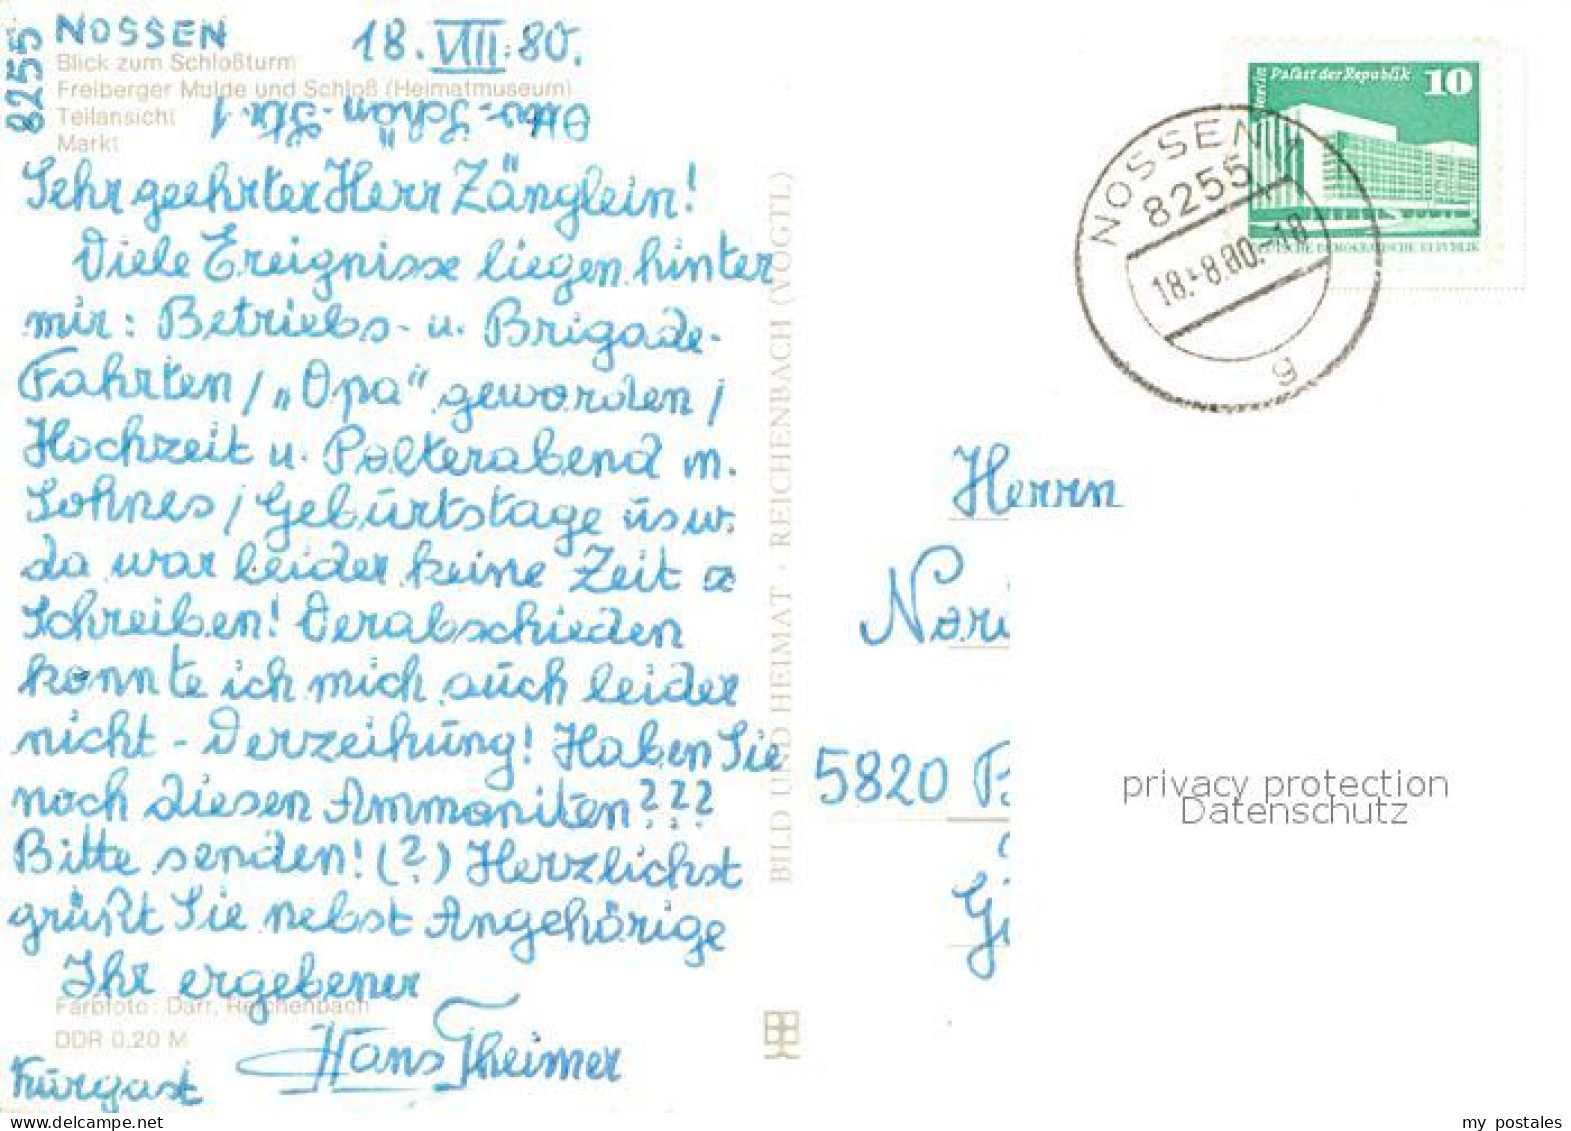 8255 NOSSEN 18. VIII. 80.
Blick zum Schloßturm
Freiberger Mulde und Schloß (Heimatmuseum)
Teilansicht
Markt
Sehr geehrter Herr Zänglein!
Viele Ereignisse liegen hinter
mir: Betriebs- u. Brigade-
Fahrten / „Opa“ geworden /
Hochzeit u. Polterabend m.
Sohnes / Geburtstage usw.
da war leider keine Zeit z
Schreiben! Verabschieden
konnte ich mich auch leider
nicht - Verzeihung! Haben Sie
noch diesen Ammoniten???
Bitte senden! (?) Herzlichst
grüßt Sie nebst Angehörige
Ihr ergebener
Hans Theimer
Kurgast
Farbfoto: Darr, Reichenbach
DDR 0,20 M
BILD UND HEIMAT · REICHENBACH (VOGTL)
Berlin Palast der Republik 10
DEUTSCHE DEMOKRATISCHE REPUBLIK
NOSSEN 1
8255
18.-8.80.-18
g
Herrn
Nori
5820
privacy protection
Datenschutz
my postales